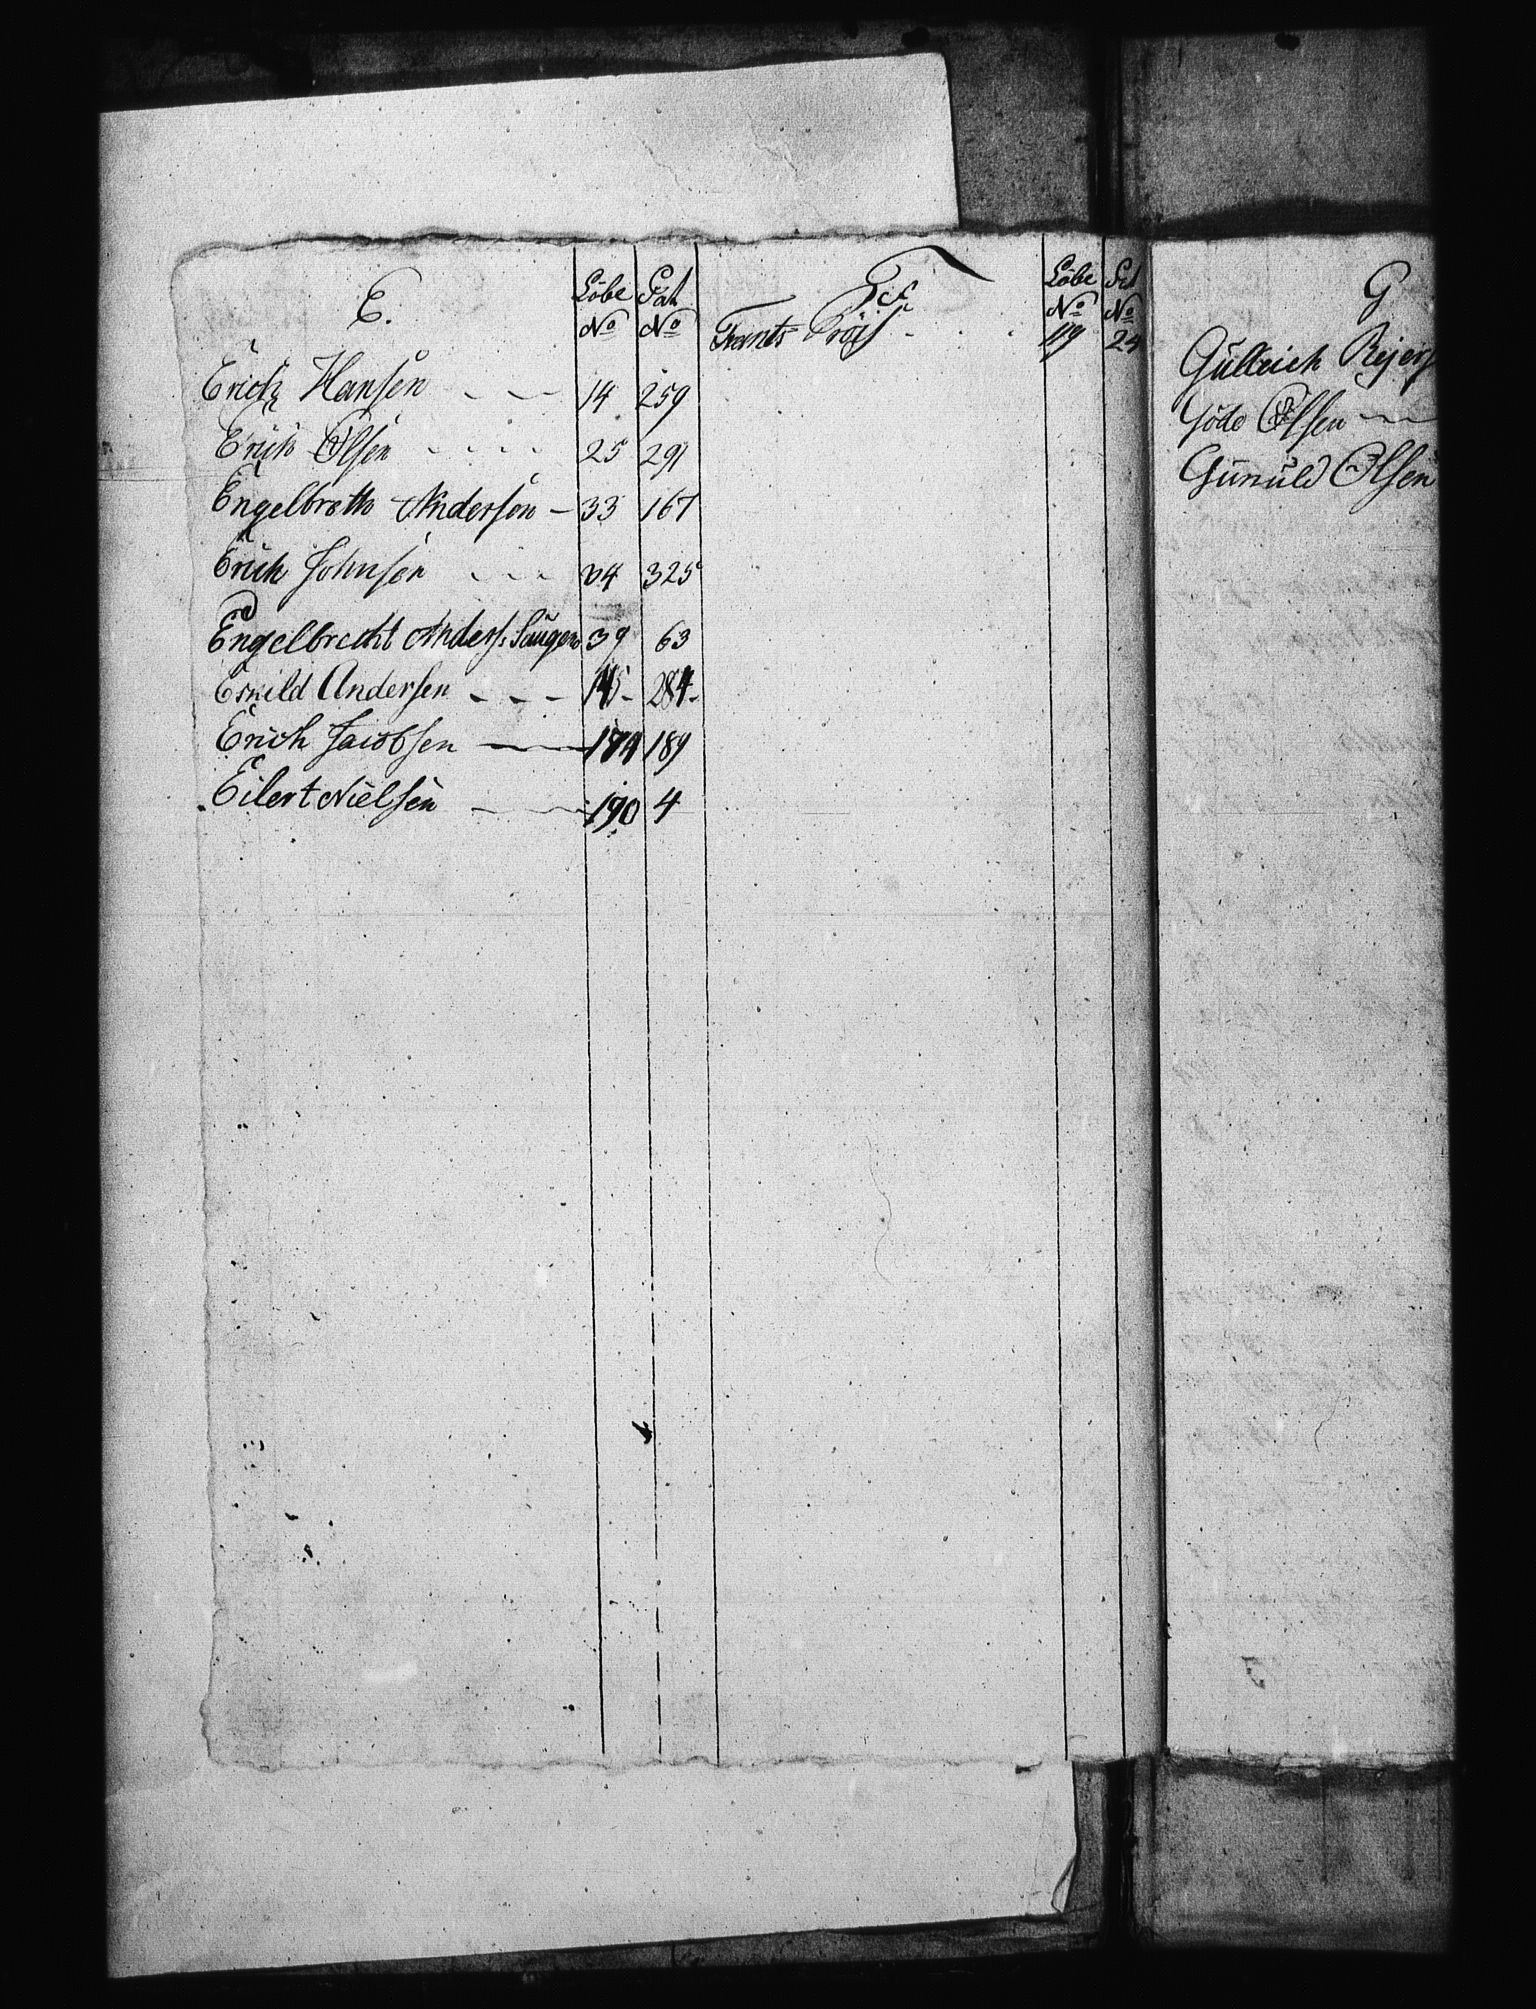 E. Löbe Pat
No No
Erich Hansen 14 259
Erich Olsen 25 291
Engelbreth Andersen - 33 167
Erich Johnsen 34 325
Engelbrecht Anders: 39 63
Eskild Andersen - - - 145 - 284 -
Erich Jacobsen 174 189
Eilert Nielsen 190 4
F Löbe Pat
No No
Frants 119 24
G
Gullrich Rejers
Göde Olsen
Gunuld Olsen